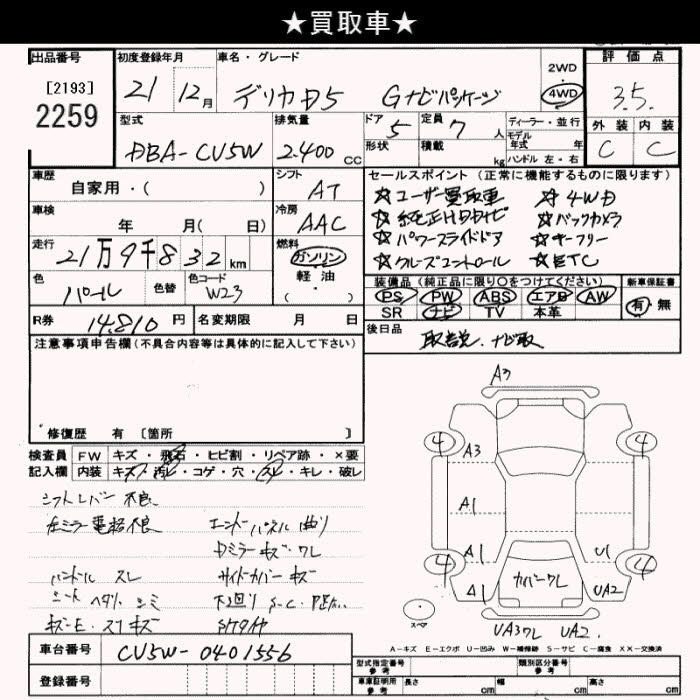 ★買取車★
出品番号
[2193]
2259
初度登録年月
21年 12月
車名・グレード
デリカD5 Gナビパッケージ
2WD
4WD
評価点
3.5.
外装 内装
C C
型式
DBA-CV5W
排気量
2.400 CC
ドア 5
形状
定員 7人
積載 kg
ディーラー・並行
モデル年式 年
ハンドル 左・右
車歴
自家用・( )
シフト
AT
車検
年 月( 日)
冷房
AAC
走行
21万9千832km
燃料
ガソリン
軽油
( ・ )
色
パール
色替
色コード
W23
R券 14.810円
名変期限 月 日
セールスポイント(正常に機能するものに限ります)
☆ユーザー買取車 ☆4WD
☆純正HDDナビ ☆バックカメラ
☆パワースライドドア ☆キーフリー
☆クルーズコントロール ☆ETC
装備品(純正品に限り○をつけてください)
PS PW ABS エアB AW
SR ナビ TV 本革
新車保証書
有・無
後日品
取説.ナビ取
注意事項申告欄(不具合内容等は具体的に記入して下さい)
修復歴 有 〔箇所 〕
検査員記入欄
FW キズ・飛石・ヒビ割・リペア跡・×要
内装 キズ・汚レ・コゲ・穴・スレ・キレ・破レ
シフトレバー不良
左ミラー電格不良 エンドパネル曲り
Dミラーキズ・ワレ
ハンドル スレ サイドカバーキズ
シート ヘタリ シミ 下廻り S-C.
キズ
A3
4 4
A3
A1
A1 U1
4 4
A1 カバーワレ UA2
スペア
UA3ワレ UA2.
A-キズ E-エクボ U-凹み W-補修跡 S-サビ C-腐食 XX-交換済
車台番号 CV5W-0401556
登録番号
型式指定番号 参考
類別区分番号 参考
車庫証明用 参考 長さ cm 幅 cm 高さ cm